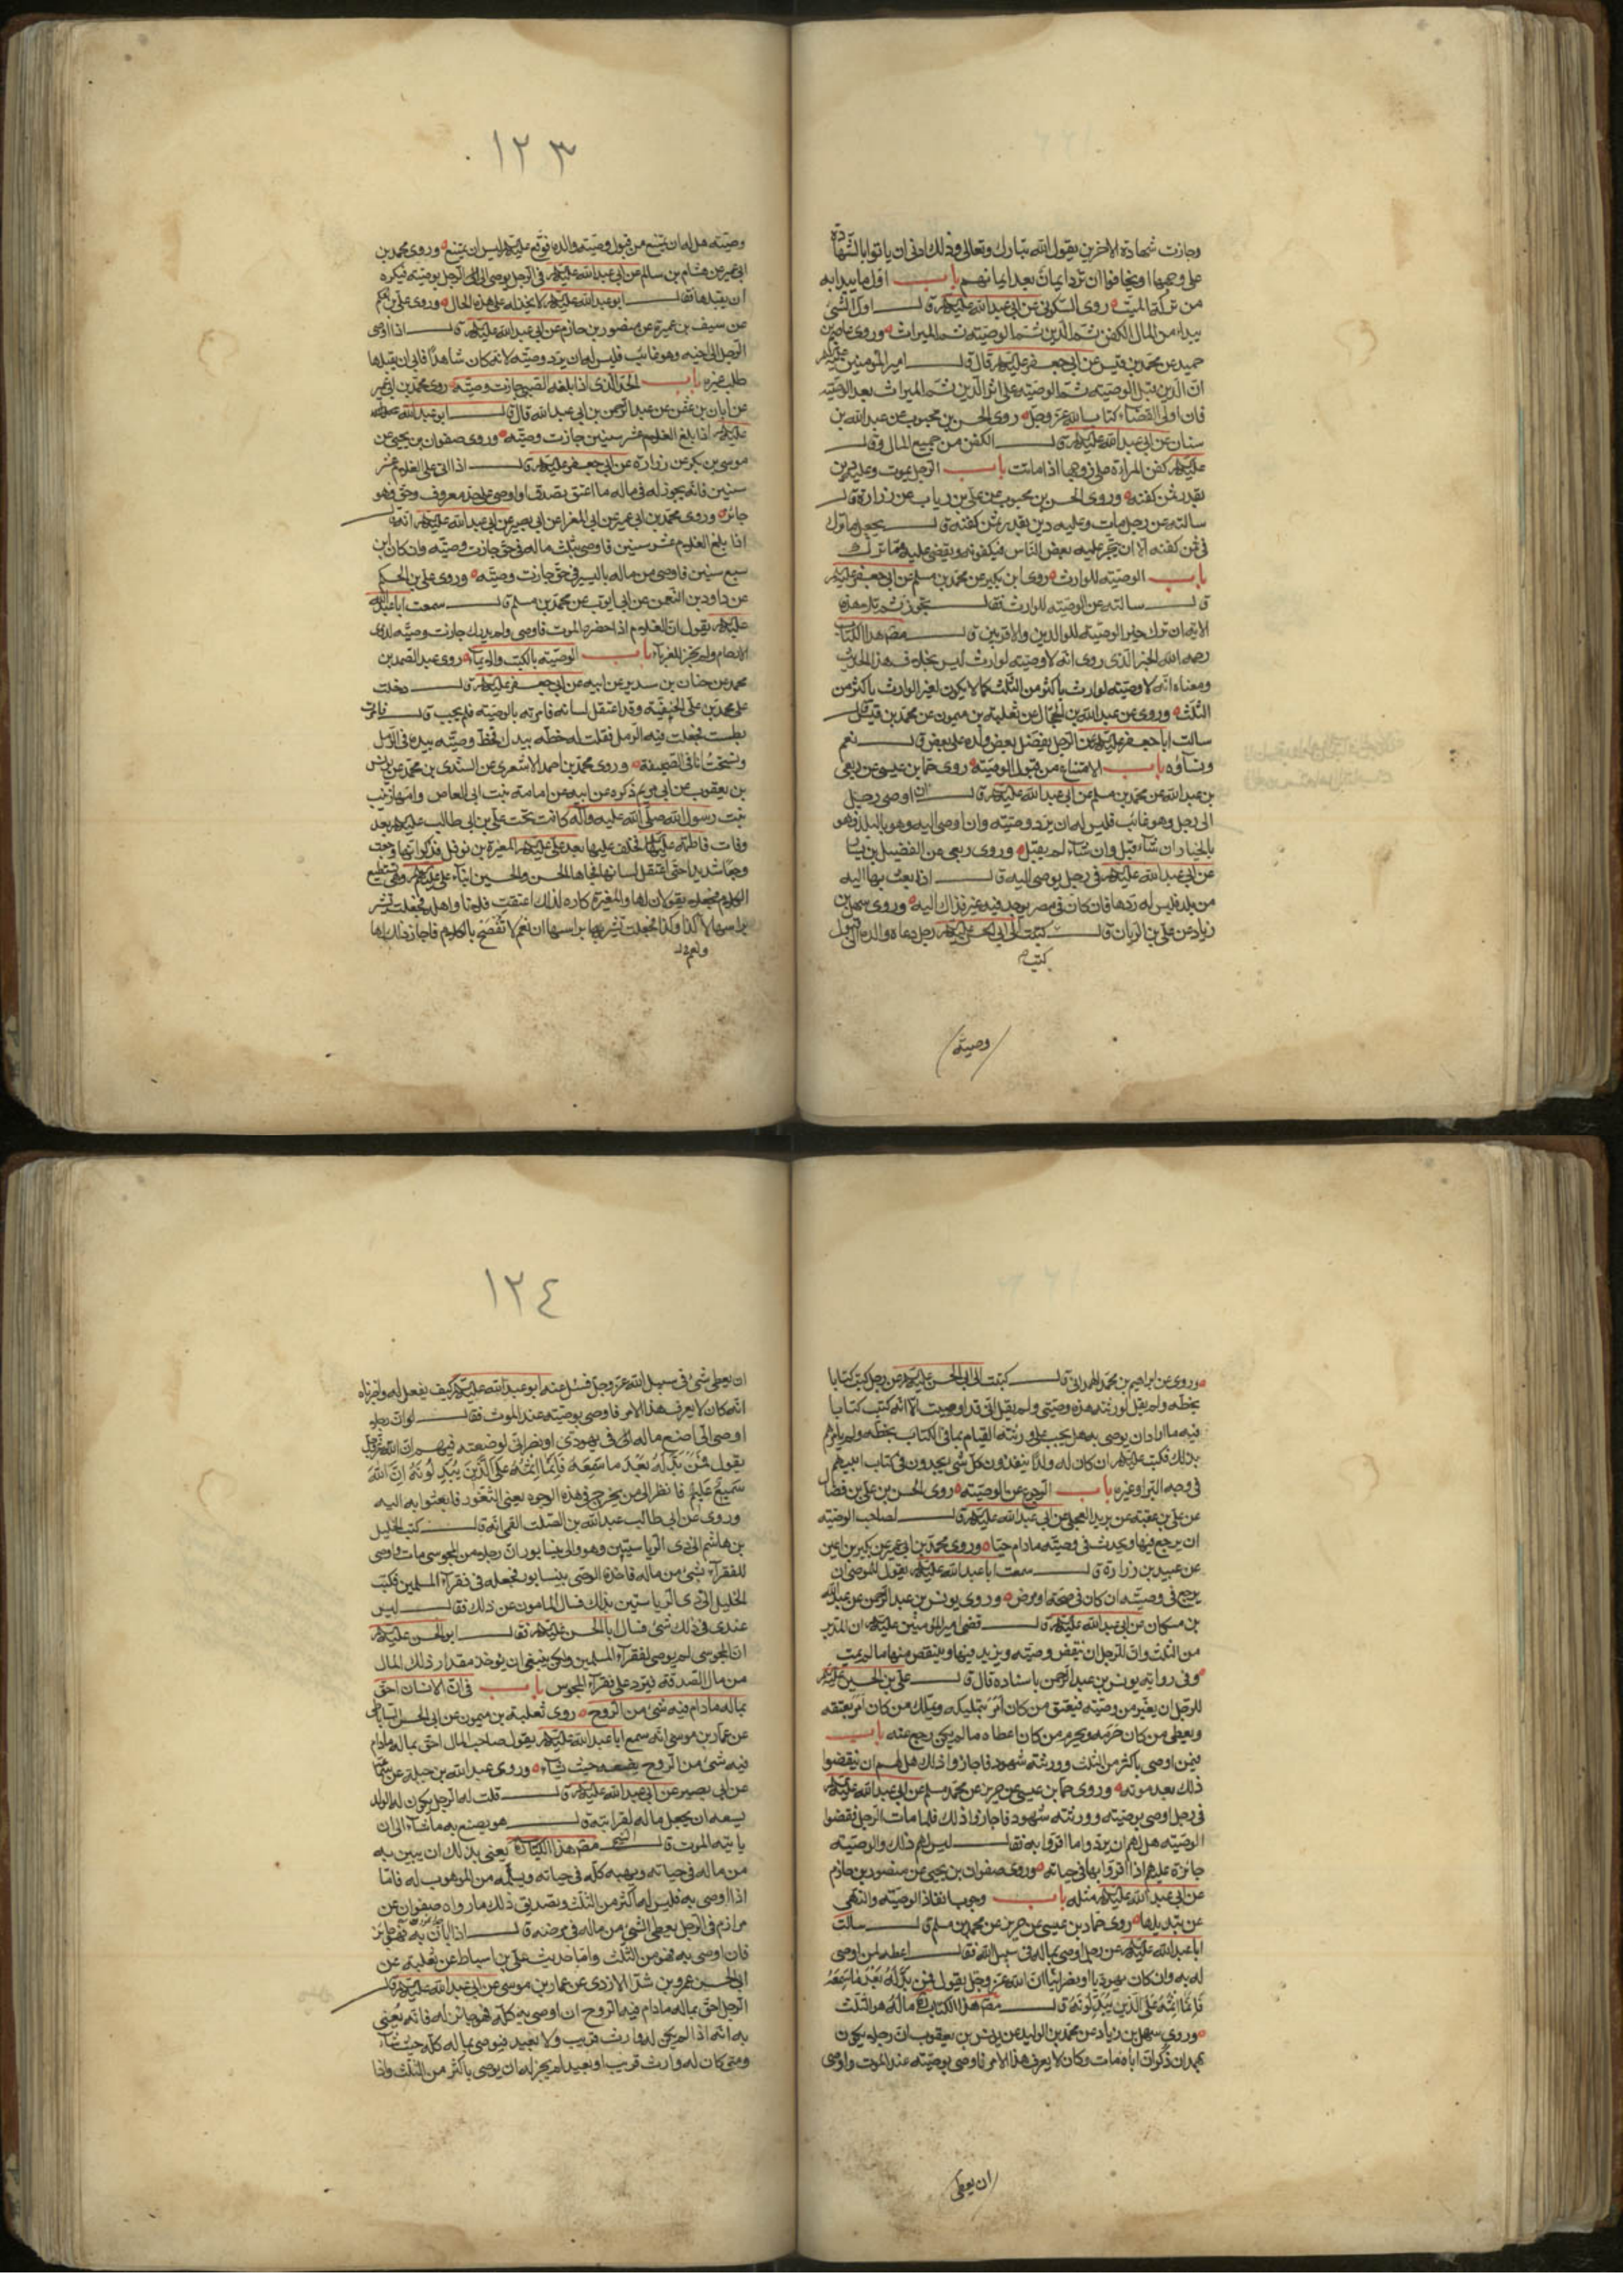 وجازت شهادة الاخرين يقول الله تبارك وتعالى وذلك ادنى ان ياتوا بالشهادة
على وجهها او يخافوا ان ترد ايمان بعد ايمانهم باب اول ما يبدا به
من تركة الميت روى السكوني عن ابي عبد الله عليه قال اول الشئ
يبداء من المال الكفن ثم الدين ثم الوصية ثم الميراث وروى عاصم بن
حميد عن محمد بن قيس عن ابي جعفر عليه قال قال امير المؤمنين عليه
ان الدين قبل الوصية ثم الوصية على اثر الدين ثم الميراث بعد الوصية
فان اولى القضاء كتاب الله عز وجل روى الحسن بن محبوب عن عبد الله بن
سنان عن ابي عبد الله عليه قال الكفن من جميع المال وقال
عليه كفن المراة على زوجها اذا ماتت باب الرجل يموت وعليه دين
بقدر ثمن كفنه وروى الحسن بن محبوب عن علي بن رياب عن زرارة قال
سالته عن رجل مات وعليه دين بقدر ثمن كفنه قال يجعل ما ترك
في ثمن كفنه الا ان يتجر عليه بعض الناس فيكفونه ويقضى عليه مما ترك
باب الوصية للوارث روى ابن بكير عن محمد بن مسلم عن ابي جعفر عليه
قال سالته عن الوصية للوارث فقال تجوز ثم تلا هذه
الاية ان ترك خيرا الوصية للوالدين والاقربين قال مص هذا الكتاب
رحمه الله الخبر الذي روى انه لا وصية لوارث ليس بخلاف هذا الحديث
ومعناه انه لا وصية لوارث باكثر من الثلث كما لا يكون لغير الوارث باكثر من
الثلث وروى عن عبد الله بن الحجال عن ثعلبة بن ميمون عن محمد بن قيس قال
سالت ابا جعفر عليه عن الرجل يفضل بعض ولده على بعض قال نعم
ونساؤه باب الامتناع من قبول الوصية روى حماد بن عيسى عن ربعي
بن عبد الله عن محمد بن مسلم عن ابي عبد الله عليه قال ان اوصى رجل
الى رجل وهو غائب فليس له ان يرد وصيته وان اوصى اليه وهو بالبلد فهو
بالخيار ان شاء قبل وان شاء لم يقبل وروى ربعي عن الفضيل بن يسار
عن ابي عبد الله عليه في رجل يوصى اليه قال اذا بعث بها اليه
من بلد فليس له ردها فان كان في مصر يوجد فيه غيره فذاك اليه وروى سهل بن
زياد عن علي بن الريان قال كتبت الى ابي الحسن عليه رجل دعاه والده الى قبول
كتب
وصيته
١٢٣
وصيته هل له ان يمتنع من قبول وصيته والده فوقع عليه ليس ان يمتنع وروى محمد بن
ابي عمير عن هشام بن سالم عن ابي عبد الله عليه في الرجل يوصى الى الرجل بوصيته فيكره
ان يقبلها فقال ابو عبد الله عليه لا يخذله على هذه الحال وروى علي بن الحكم
عن سيف بن عميرة عن منصور بن حازم عن ابي عبد الله عليه قال اذا اوصى
الرجل الى اخيه وهو غائب فليس له ان يرد وصيته لانه كان شاهدا فابى ان يقبلها
طلب غيره باب الحد الذي اذا بلغه الصبي جازت وصيته روى محمد بن ابي عمير
عن ابان بن عثمن عن عبد الرحمن بن ابي عبد الله قال قال ابو عبد الله
عليه اذا بلغ الغلام عشر سنين جازت وصيته وروى صفوان بن يحيى عن
موسى بن بكر عن زرارة عن ابي جعفر عليه قال اذا اتى على الغلام عشر
سنين فانه يجوز له في ماله ما اعتق تصدق او اوصى على حد معروف وحق فهو
جائز وروى محمد بن ابي عمير عن ابي المغرا عن ابي بصير عن ابي عبد الله عليه انه قال
اذا بلغ الغلام عشر سنين فاوصى بثلث ماله في حق جازت وصيته فان كان ابن
سبع سنين فاوصى من ماله باليسير في حق جازت وصيته وروى علي بن الحكم
عن داود بن النعمن عن ابي ايوب عن محمد بن مسلم قال سمعت ابا عبد الله
عليه يقول ان الغلام اذا حضره الموت فاوصى ولم يدرك جازت وصيته لذوى
الارحام ولم يجز للغرباء باب الوصية بالكتب والايماء روى عبد الصمد بن
محمد عن حنان بن سدير عن ابيه عن ابي جعفر عليه قال دخلت
على محمد بن علي الحنفية وقد اعتقل لسانه فامرته بالوصية فلم يجب قال فامرت
بطست فجعلت فيه الرمل فقلت له خطه بيدك فخط وصيته بيده في الرمل
ونسخت انا في الصحيفة وروى محمد بن احمد الاشعري عن السندي بن محمد عن يونس
بن يعقوب عن ابي مريم ذكره عن ابيه عن امامة بنت ابي العاص وامها زينب
بنت رسول الله صلى الله عليه وآله كانت تحت علي بن ابي طالب عليه بعد
وفات فاطمة عليها فخلف عليها بعد علي عليه المغيرة بن نوفل فذكر انها وجعت
وجعا شديدا حتى اعتقل لسانها فجاءها الحسن والحسين ابناء علي عليه وهي لا تستطيع
الكلام فجعلا يقولان لها والمغيرة كاره لذلك اعتقت فلانا واهله فجعلت تشير
براسها لا كذا وكذا فجعلت تشير براسها ان نعم لا تفصح بالكلام فاجاز ذلك لها
وروى عن ابراهيم بن محمد الهمداني قال كتبت الى ابي الحسن عليه عن رجل كتب كتابا
بخطه ولم يقل لورثته هذه وصيتي ولم يقل اني قد اوصيت الا انه كتب كتابا
فيه ما اراد ان يوصى به هل يجب على ورثته القيام بما في الكتاب بخطه ولم يامرهم
بذلك فكتب عليه ان كان له ولد ينفذون كل شئ يجدون في كتاب ابيهم
في وجه البر او غيره باب الرجوع عن الوصية روى الحسن بن علي بن فضال
عن علي بن عقبة عن بريد العجلي عن ابي عبد الله عليه قال لصاحب الوصية
ان يرجع فيها ويحدث في وصيته مادام حيا وروى محمد بن ابي عمير عن بكير بن اعين
عن عبيد بن زرارة قال سمعت ابا عبد الله عليه يقول للموصى ان
يرجع في وصيته ان كان في صحة او مرض وروى يونس بن عبد الرحمن عن عبد الله
بن مسكان عن ابي عبد الله عليه قال قضى امير المؤمنين عليه ان المدبر
من الثلث وان للرجل ان ينقض وصيته ويزيد فيها وينقص منها ما لم يمت
وفي رواية يونس بن عبد الرحمن باسناده قال قال علي بن الحسين عليه
للرجل ان يغير من وصيته فيعتق من كان امر بتمليكه ويملك من كان امر بعتقه
ويعطى من كان حرمه ويحرم من كان اعطاه ما لم يكن رجع عنه باب
فيمن اوصى باكثر من الثلث وورثته شهود فاجازوا ذلك هل لهم ان ينقضوا
ذلك بعد موته وروى حماد بن عيسى عن حريز عن محمد بن مسلم عن ابي عبد الله عليه
في رجل اوصى بوصيته وورثته شهود فاجازوا ذلك فلما مات الرجل نقضوا
الوصية هل لهم ان يردوا ما اقروا به فقال ليس لهم ذلك والوصية
جائزة عليهم اذا اقروا بها في حياته وروى صفوان بن يحيى عن منصور بن حازم
عن ابي عبد الله عليه مثله باب وجوب انفاذ الوصية والنهي
عن تبديلها روى حماد بن عيسى عن حريز عن محمد بن مسلم قال سالت
ابا عبد الله عليه عن رجل اوصى بماله في سبيل الله فقال اعطه لمن اوصى
له به وان كان يهوديا او نصرانيا ان الله عز وجل يقول فمن بدله بعد ما سمعه
فانما اثمه على الذين يبدلونه قال مص هذا الكتاب ماله هو الثلث
وروى سهل بن زياد عن محمد بن الوليد عن يونس بن يعقوب ان رجلا يكون
بهمدان ذكر ان اباه مات وكان لا يعرف هذا الامر فاوصى بوصيته عند الموت واوصى
ان يعطى
١٢٤
ان يعطى شئ في سبيل الله عز وجل فسئل عنه ابو عبد الله عليه كيف يفعل له واخبرناه
انه كان لا يعرف هذا الامر فاوصى بوصيته عند الموت فقال لو ان رجلا
اوصى الى اضع ماله في يهودي او نصراني لوضعته فيهم ان الله عز وجل
يقول فمن بدله بعد ما سمعه فانما اثمه على الذين يبدلونه ان الله
سميع عليم فانظر الى من يخرج في هذه الوجوه يعنى الثغور فابعثوا به اليه
وروى عن ابي طالب عبد الله بن الصلت القمي انه قال كتب الخليل
بن هاشم الى ذي الرياستين وهو والي نيسابور ان رجلا من المجوسي مات واوصى
للفقراء بشئ من ماله فاخذه الوصى بنيسابور فجعله في فقراء المسلمين فكتب
الخليل الى ذي الرياستين بذلك فسال المامون عن ذلك فقال ليس
عندى في ذلك شئ فسال ابا الحسن عليه فقال ابو الحسن عليه
ان المجوسي لم يوصى لفقراء المسلمين ولكن ينبغى ان يوخذ مقدار ذلك المال
من مال الصدقة فيرد على فقراء المجوس باب في ان الانسان احق
بماله مادام فيه شئ من الروح روى ثعلبة بن ميمون عن ابي الحسن الساباطي
عن عمار بن موسى انه سمع ابا عبد الله عليه يقول صاحب المال احق بماله مادام
فيه شئ من الروح يضعه حيث شاء وروى عبد الله بن جبلة عن سماعة
عن ابي بصير عن ابي عبد الله عليه قال قلت له الرجل يكون له الولد
يسعه ان يجعل ماله لقرابته قال هو يصنع به ما شاء الى ان
ياتيه الموت قال مص هذا الكتاب يعنى بذلك ان يبين به
من ماله في حياته ويهبه كله في حياته ويسلمه من الموهوب له فاما
اذا اوصى به فليس له اكثر من الثلث وتصديق ذلك ما رواه صفوان عن
مرازم في الرجل يعطى الشئ من ماله في مرضه قال اذا ابان به فهو جائز
فان اوصى به فهو من الثلث واما حديث علي بن اسباط عن ثعلبة عن
ابي الحسن عمرو بن شداد الازدي عن عمار بن موسى عن ابي عبد الله عليه قال
الرجل احق بماله مادام فيه الروح ان اوصى به كله فهو جائز له فانه يعنى
به انه اذا لم يكن له وارث قريب ولا بعيد فيوصى بماله كله حيث شاء
ومتى كان له وارث قريب او بعيد لم يجز له ان يوصى باكثر من الثلث واذا